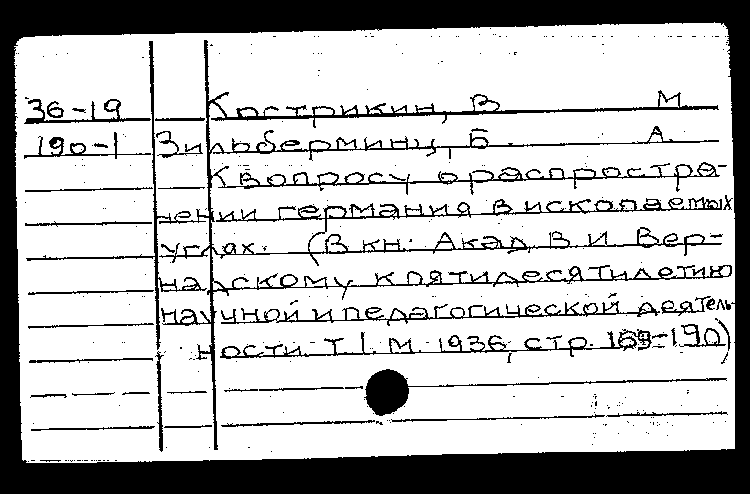 36-19 Кострикин, В. М.
190-1 Зильберминц, Б. А.
К вопросу о распростра-
нении германия в ископаемых
углях. (В кн: Акад В. И. Вер-
надскому к пятидесятилетию
научной и педагогической деятель-
ности. Т I. М. 1936, стр. 169-190)